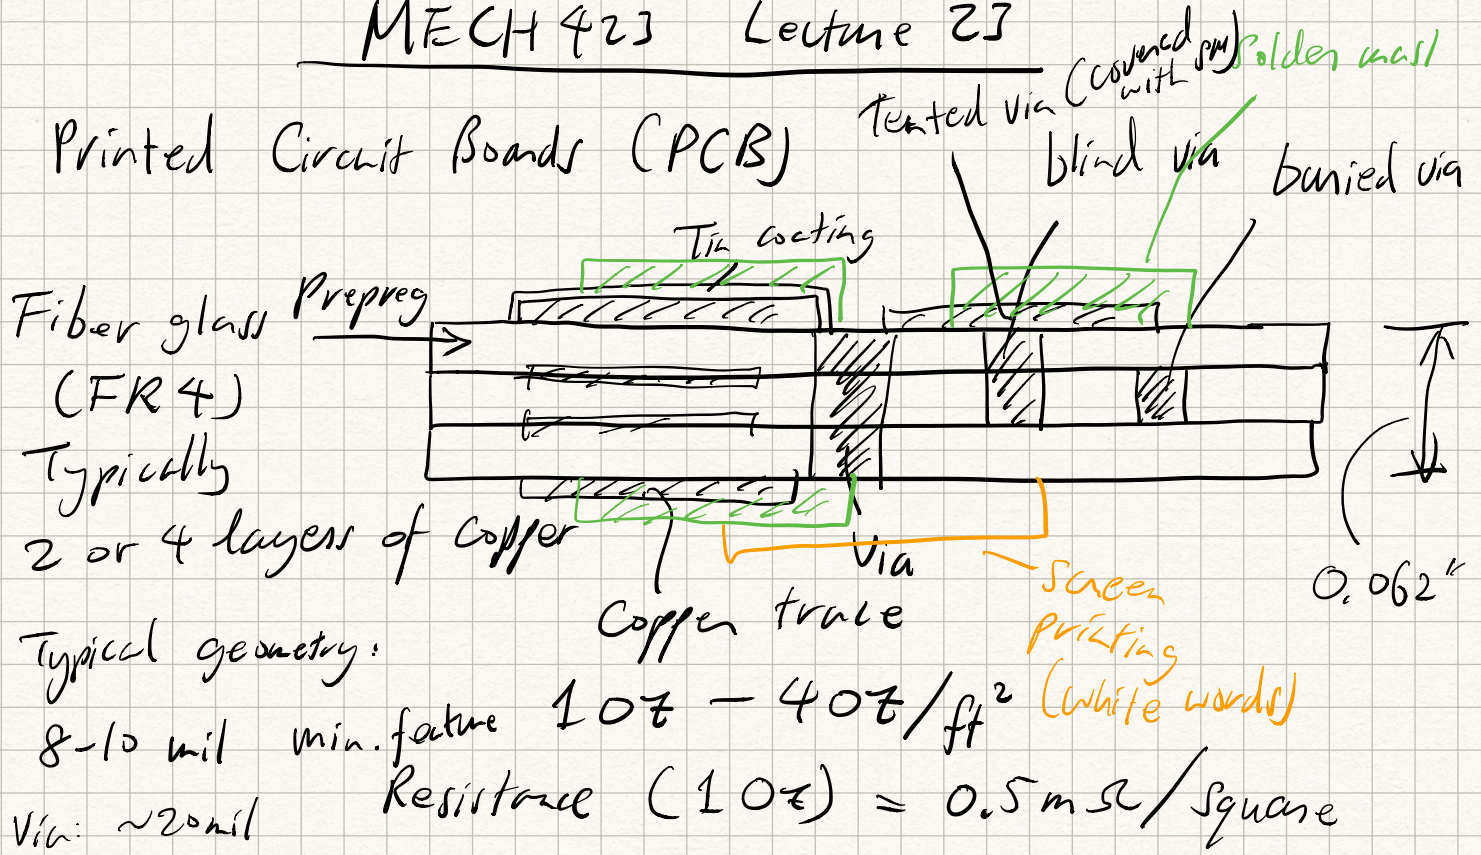 MECH 423 Lecture 23
Printed Circuit Boards (PCB)
Tented via (covered with sm)
Solder mask
blind via
buried via
Tin coating
Prepreg
Fiber glass
(FR4)
Typically
2 or 4 layers of copper
Via
Copper trace
screen
printing
(white words)
0.062"
Typical geometry:
8-10 mil min. feature
Via: ~20mil
1oz - 4oz/ft²
Resistance (1oz) = 0.5mΩ/square